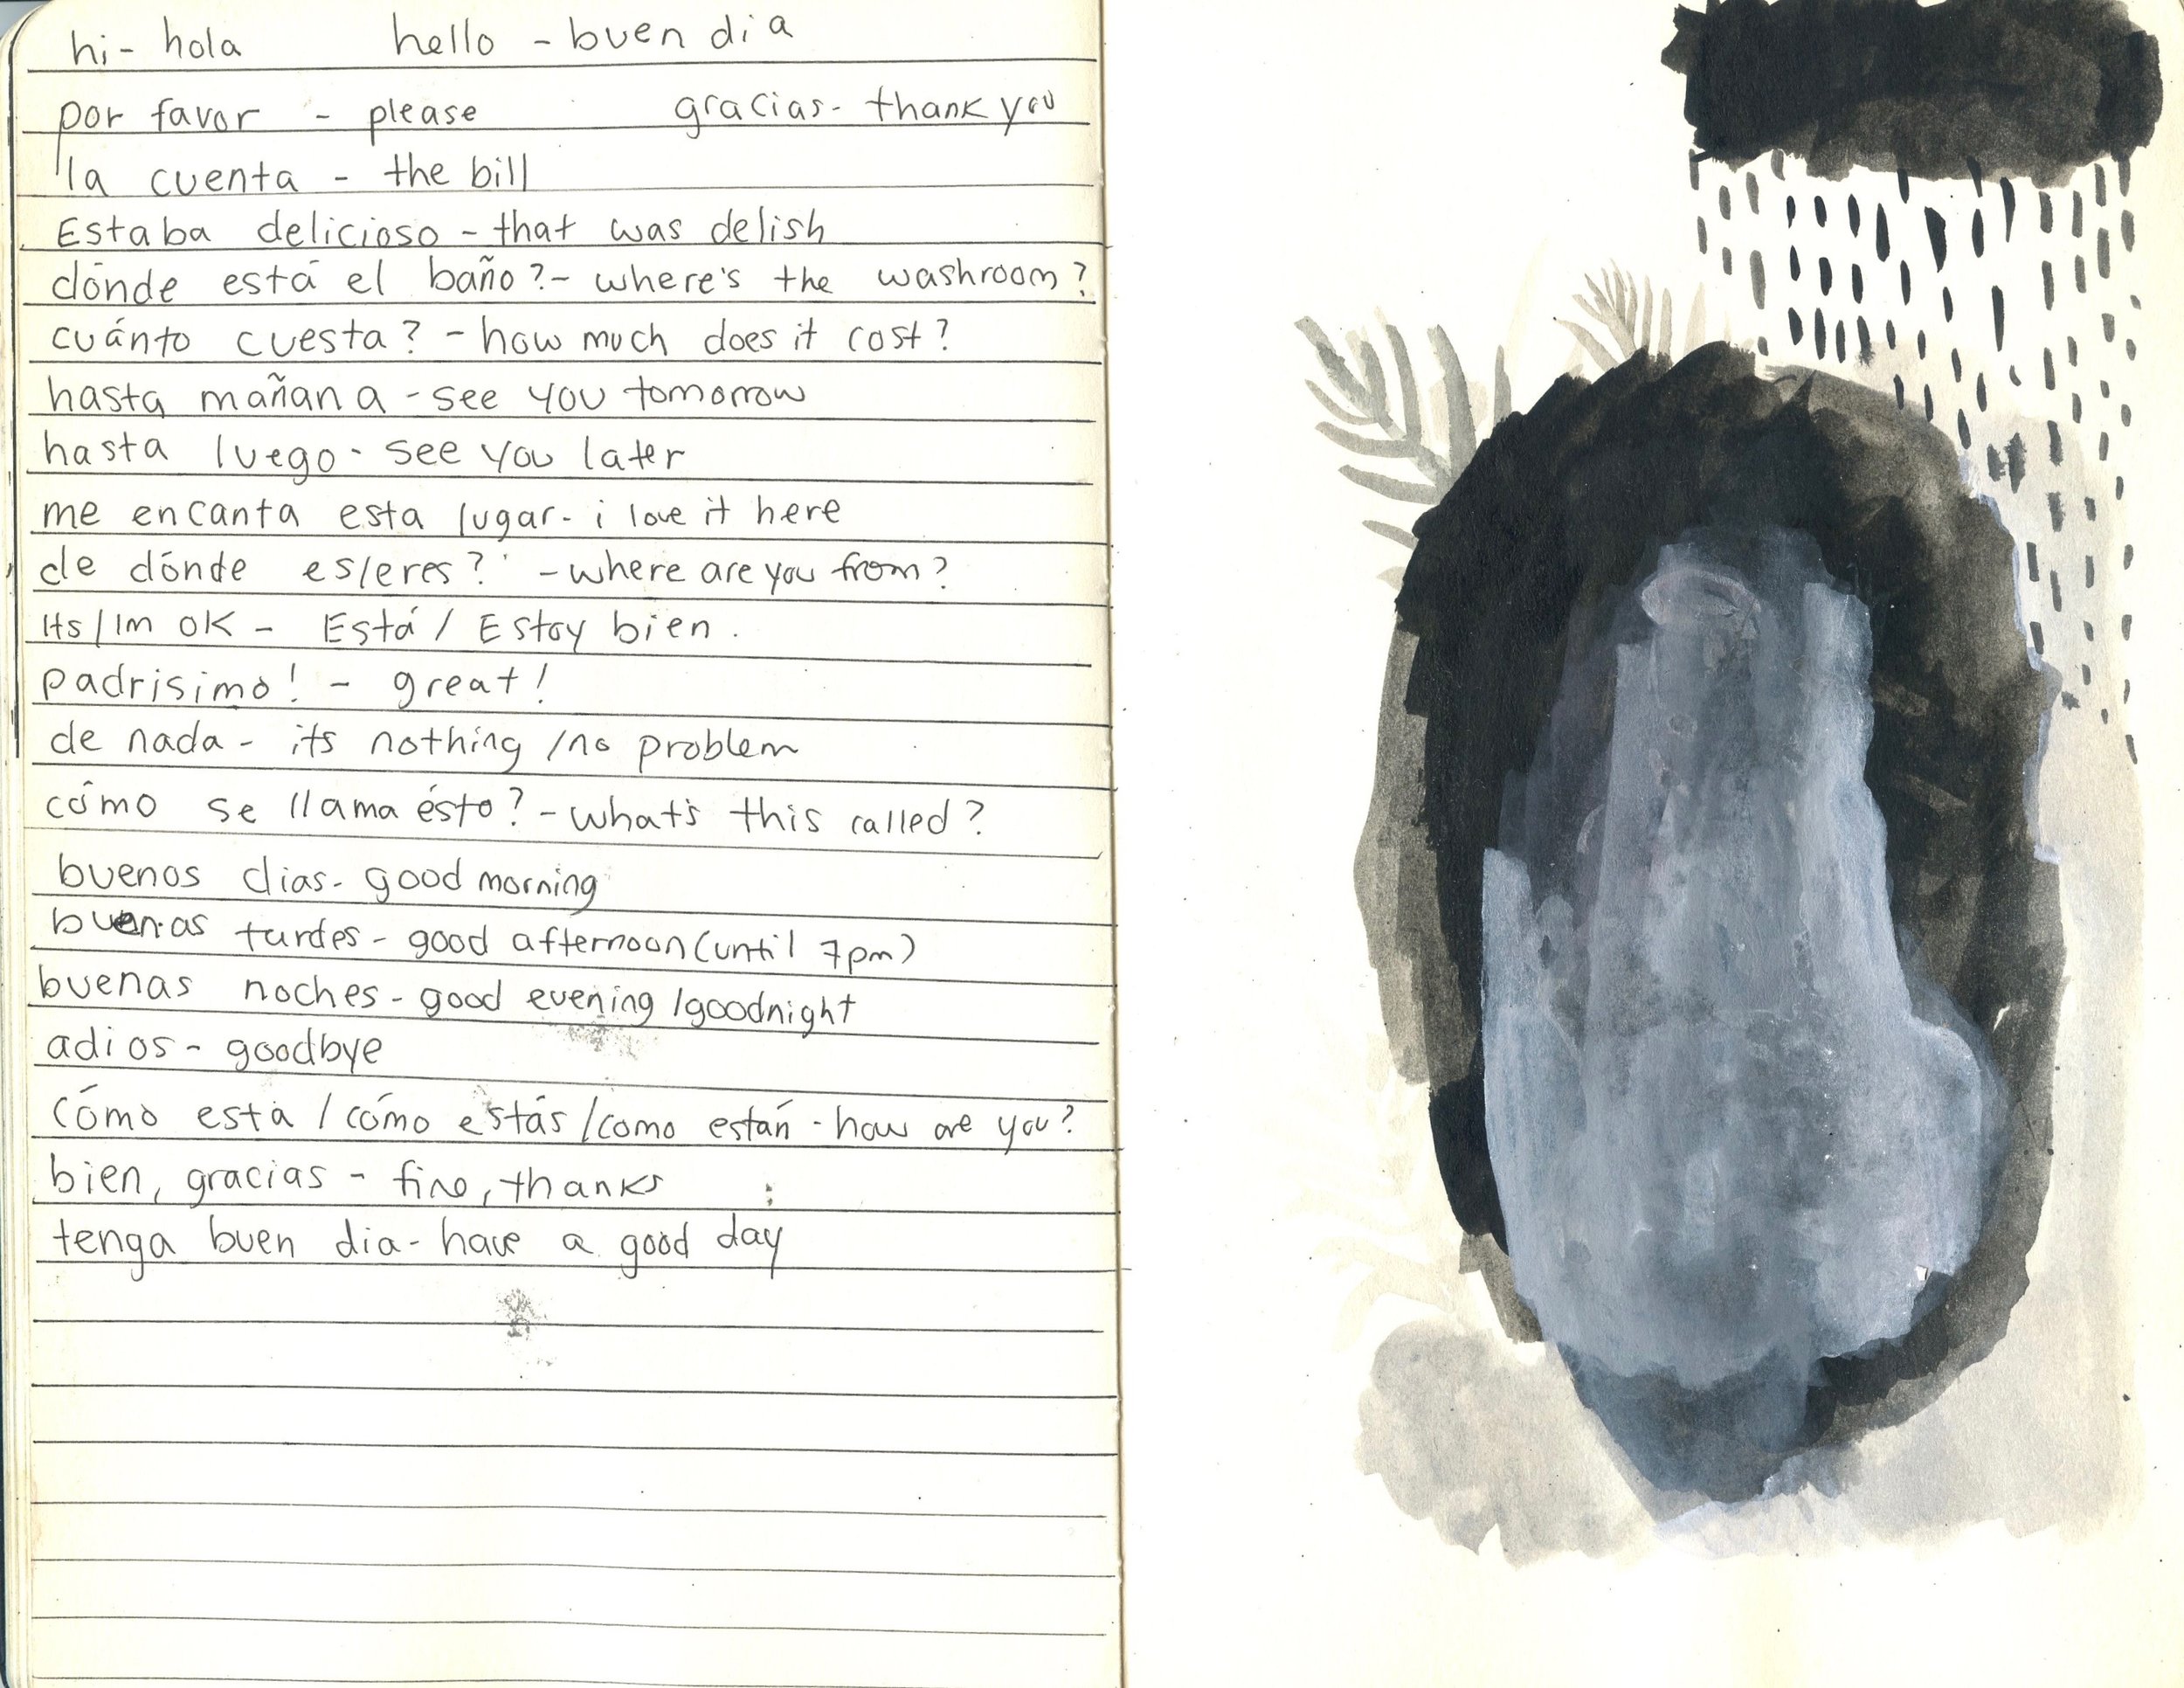 hi- hola hello - buen dia
por favor - please gracias- thank you
la cuenta - the bill
Estaba delicioso - that was delish
dónde está el baño? - where's the washroom?
cuánto cuesta? - how much does it cost?
hasta mañana - see you tomorrow
hasta luego - see you later
me encanta esta lugar - i love it here
de dónde es/eres? - where are you from?
Its/Im OK - Está / Estoy bien.
padrisimo! - great!
de nada - its nothing /no problem
cómo se llama ésto? - what's this called?
buenos dias - good morning
buenas tardes - good afternoon (until 7pm)
buenas noches - good evening /goodnight
adios - goodbye
cómo està / cómo estás / como están - how are you?
bien, gracias - fine, thanks
tenga buen dia - have a good day